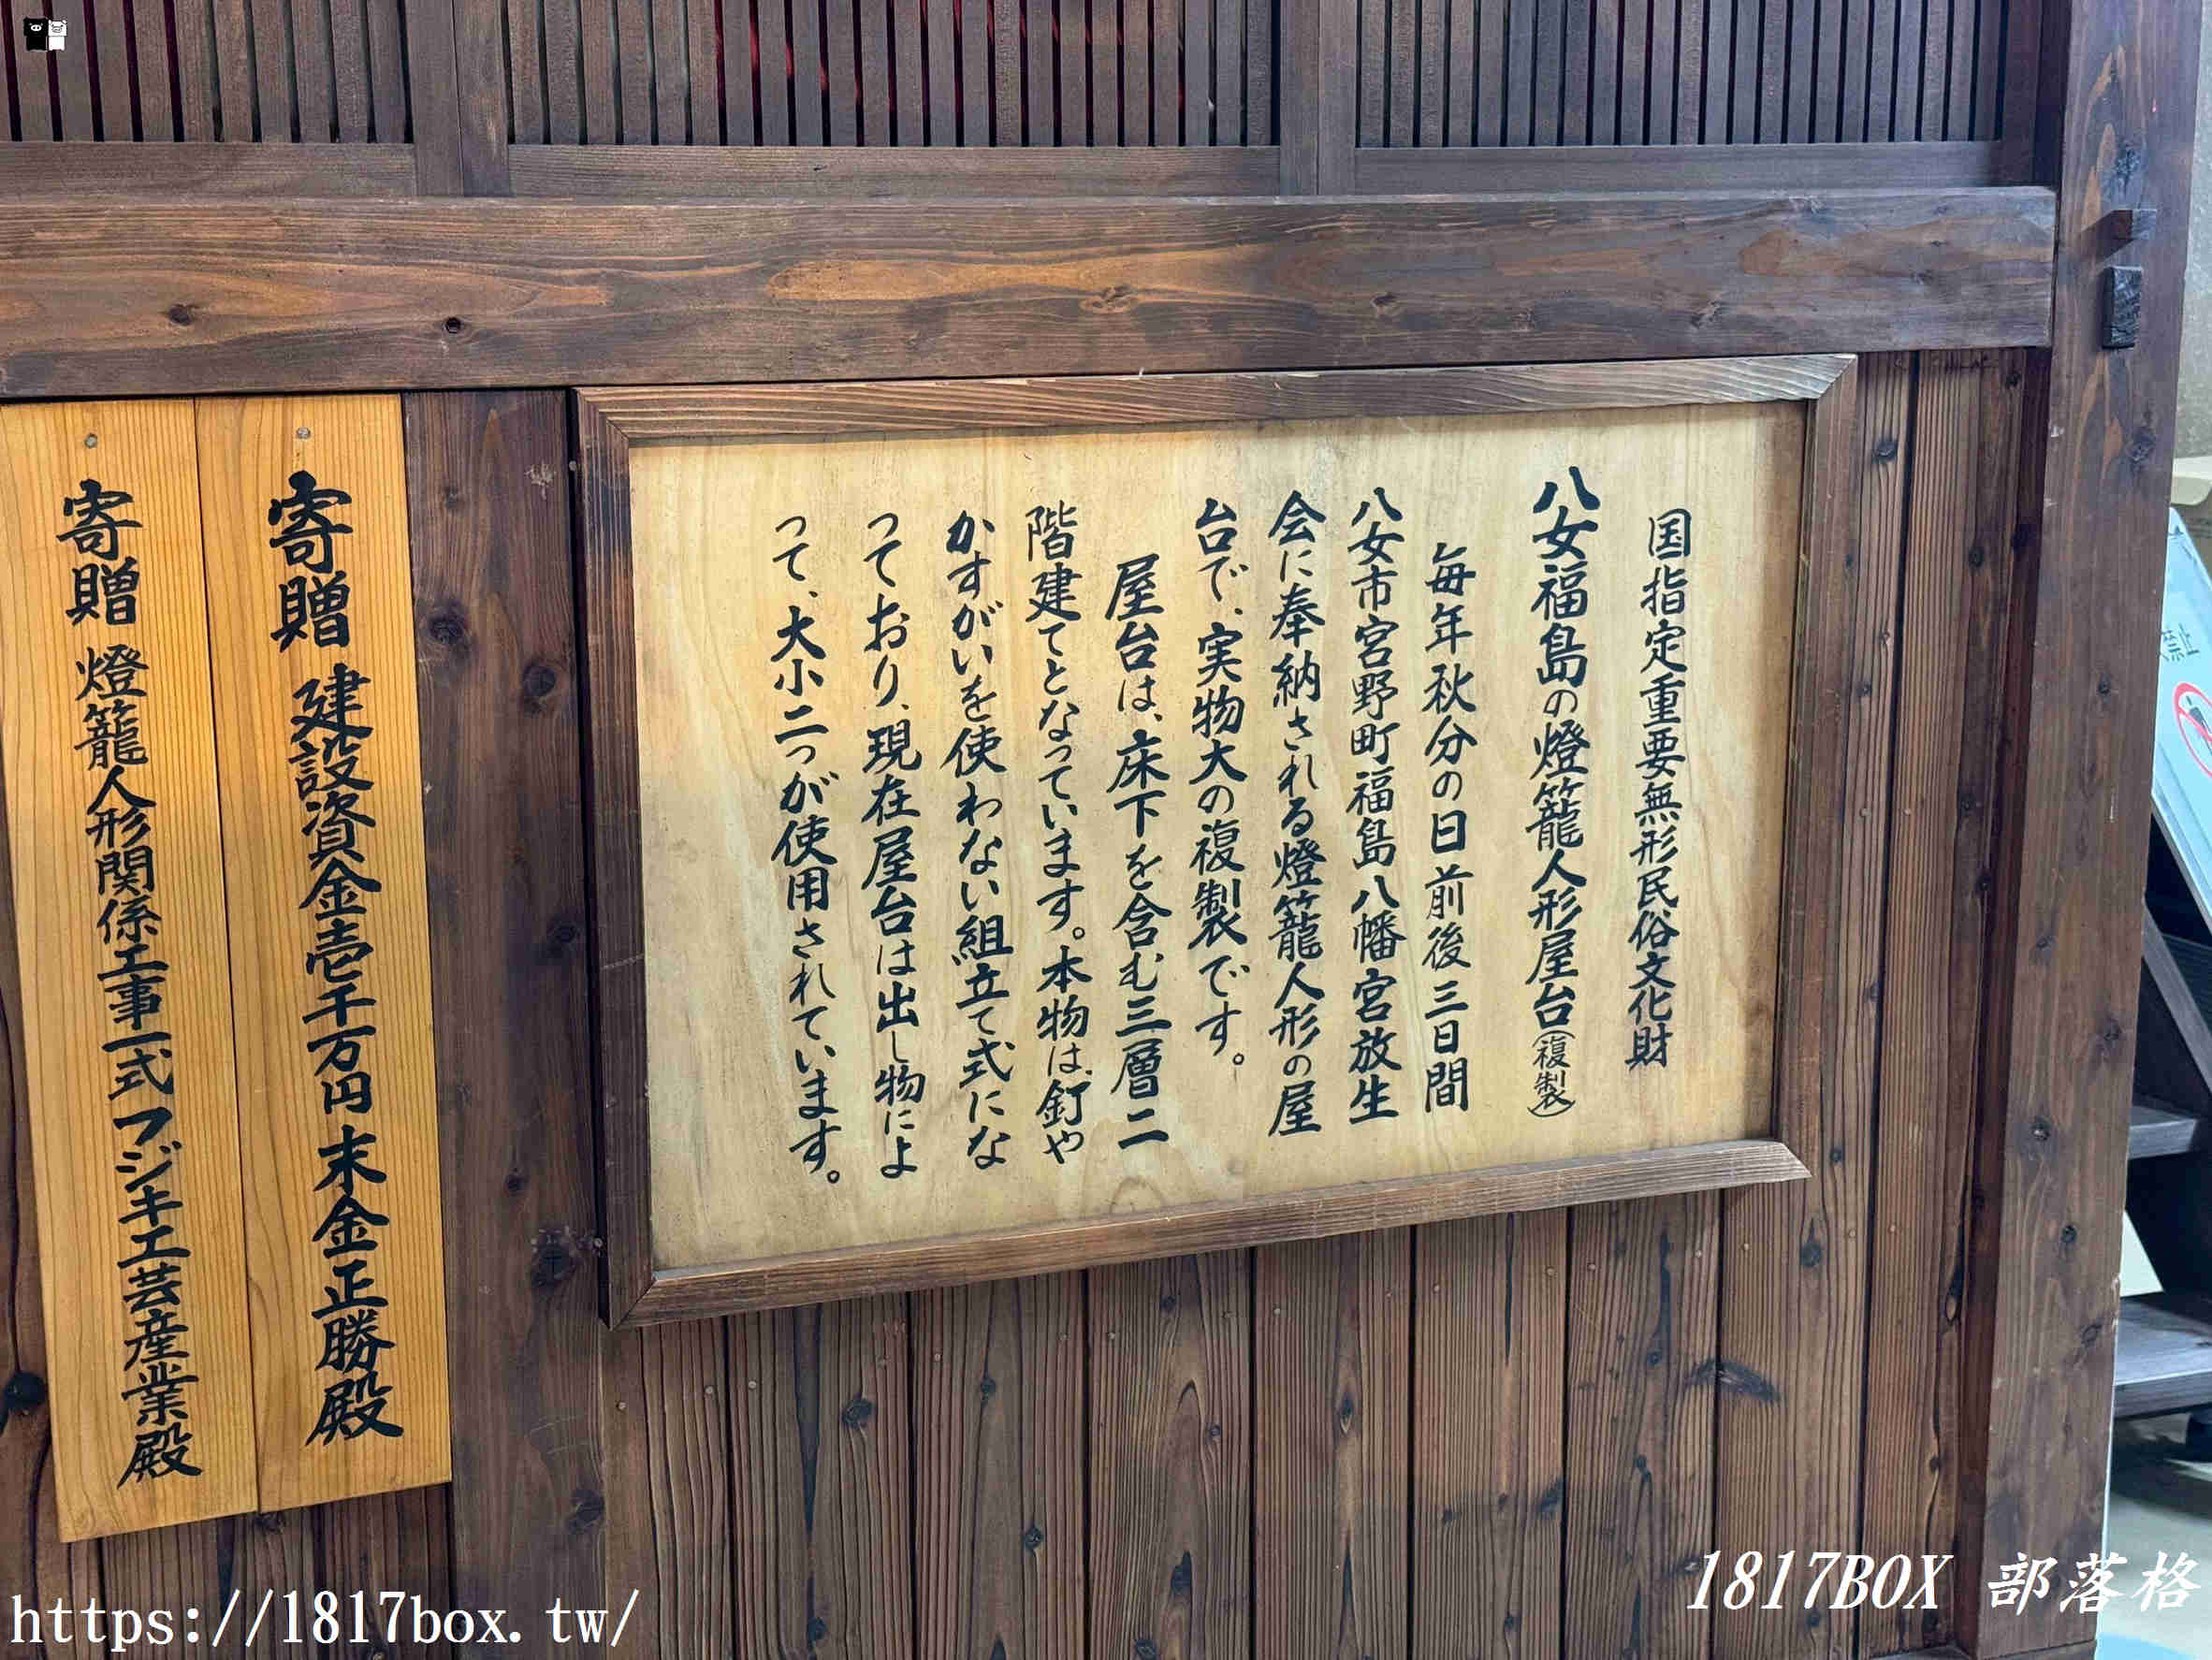 国指定重要無形民俗文化財
八女福島の燈籠人形屋台(複製)
毎年秋分の日前後三日間
八女市宮野町福島八幡宮放生
会に奉納される燈籠人形の屋
台で、実物大の複製です。
屋台は、床下を含む三層二
階建てとなっています。本物は、釘や
かすがいを使わない組立て式にな
っており、現在屋台は出し物によ
って、大小二つが使用されています。
寄贈 建設資金壱千万円 末金正勝殿
寄贈 燈籠人形関係工事一式 フジキ工芸産業殿
https://1817box.tw/
1817BOX 部落格